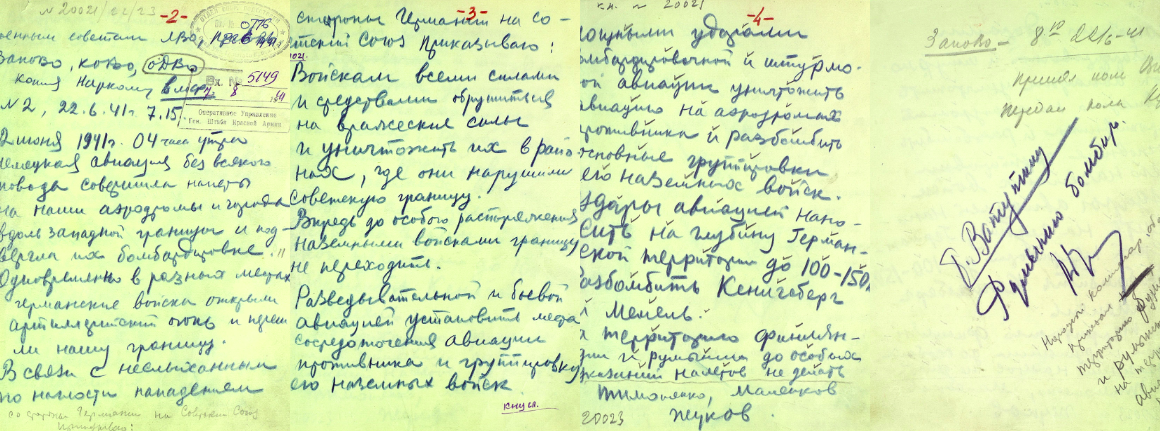 N 20021/
-2-
военным советам ЛВО,
ЗапОВО, КОВО, ОДВО
копия Наркому ВМФ
N 2, 22.6.41г. 7.15
5149
Оперативное Управление
Ген. Штаба Красной Армии
22 июня 1941г. 04 часа утра
немецкая авиация без всякого
повода совершила налеты
на наши аэродромы и города
вдоль западной границы и под
вергла их бомбардировке.
Одновременно в разных местах
германские войска открыли
артиллерийский огонь и переш
ли нашу границу.
В связи с неслыханным
по наглости нападением
со стороны Германии на Советский Союз
приказываю:
-3-
стороны Германии на Со-
ветский Союз Приказываю:
Войскам всеми силами
и средствами обрушиться
на вражеские силы
и уничтожить их в райо
нах, где они нарушили
советскую границу.
Впредь до особого распоряжения
наземными войсками границу
не переходить.
Разведывательной и боевой
авиацией установить места
сосредоточения авиации
противника и группировку
его наземных войск
кн. N 20021
-4-
мощными ударами
бомбардировочной и штурмо-
вой авиации уничтожить
авиацию на аэродромах
противника и разбомбить
основные группировки
его наземных войск.
Удары авиацией нано-
сить на глубину Герман-
ской территории до 100-150
разбомбить Кенигсберг
и Мемель.
На территорию Финлян-
дии и Румынии до особых
указаний налетов не делать
Тимошенко, Маленков
Жуков.
20023
Запово - 8 41
принял пом
передал пом
т. Ватутину